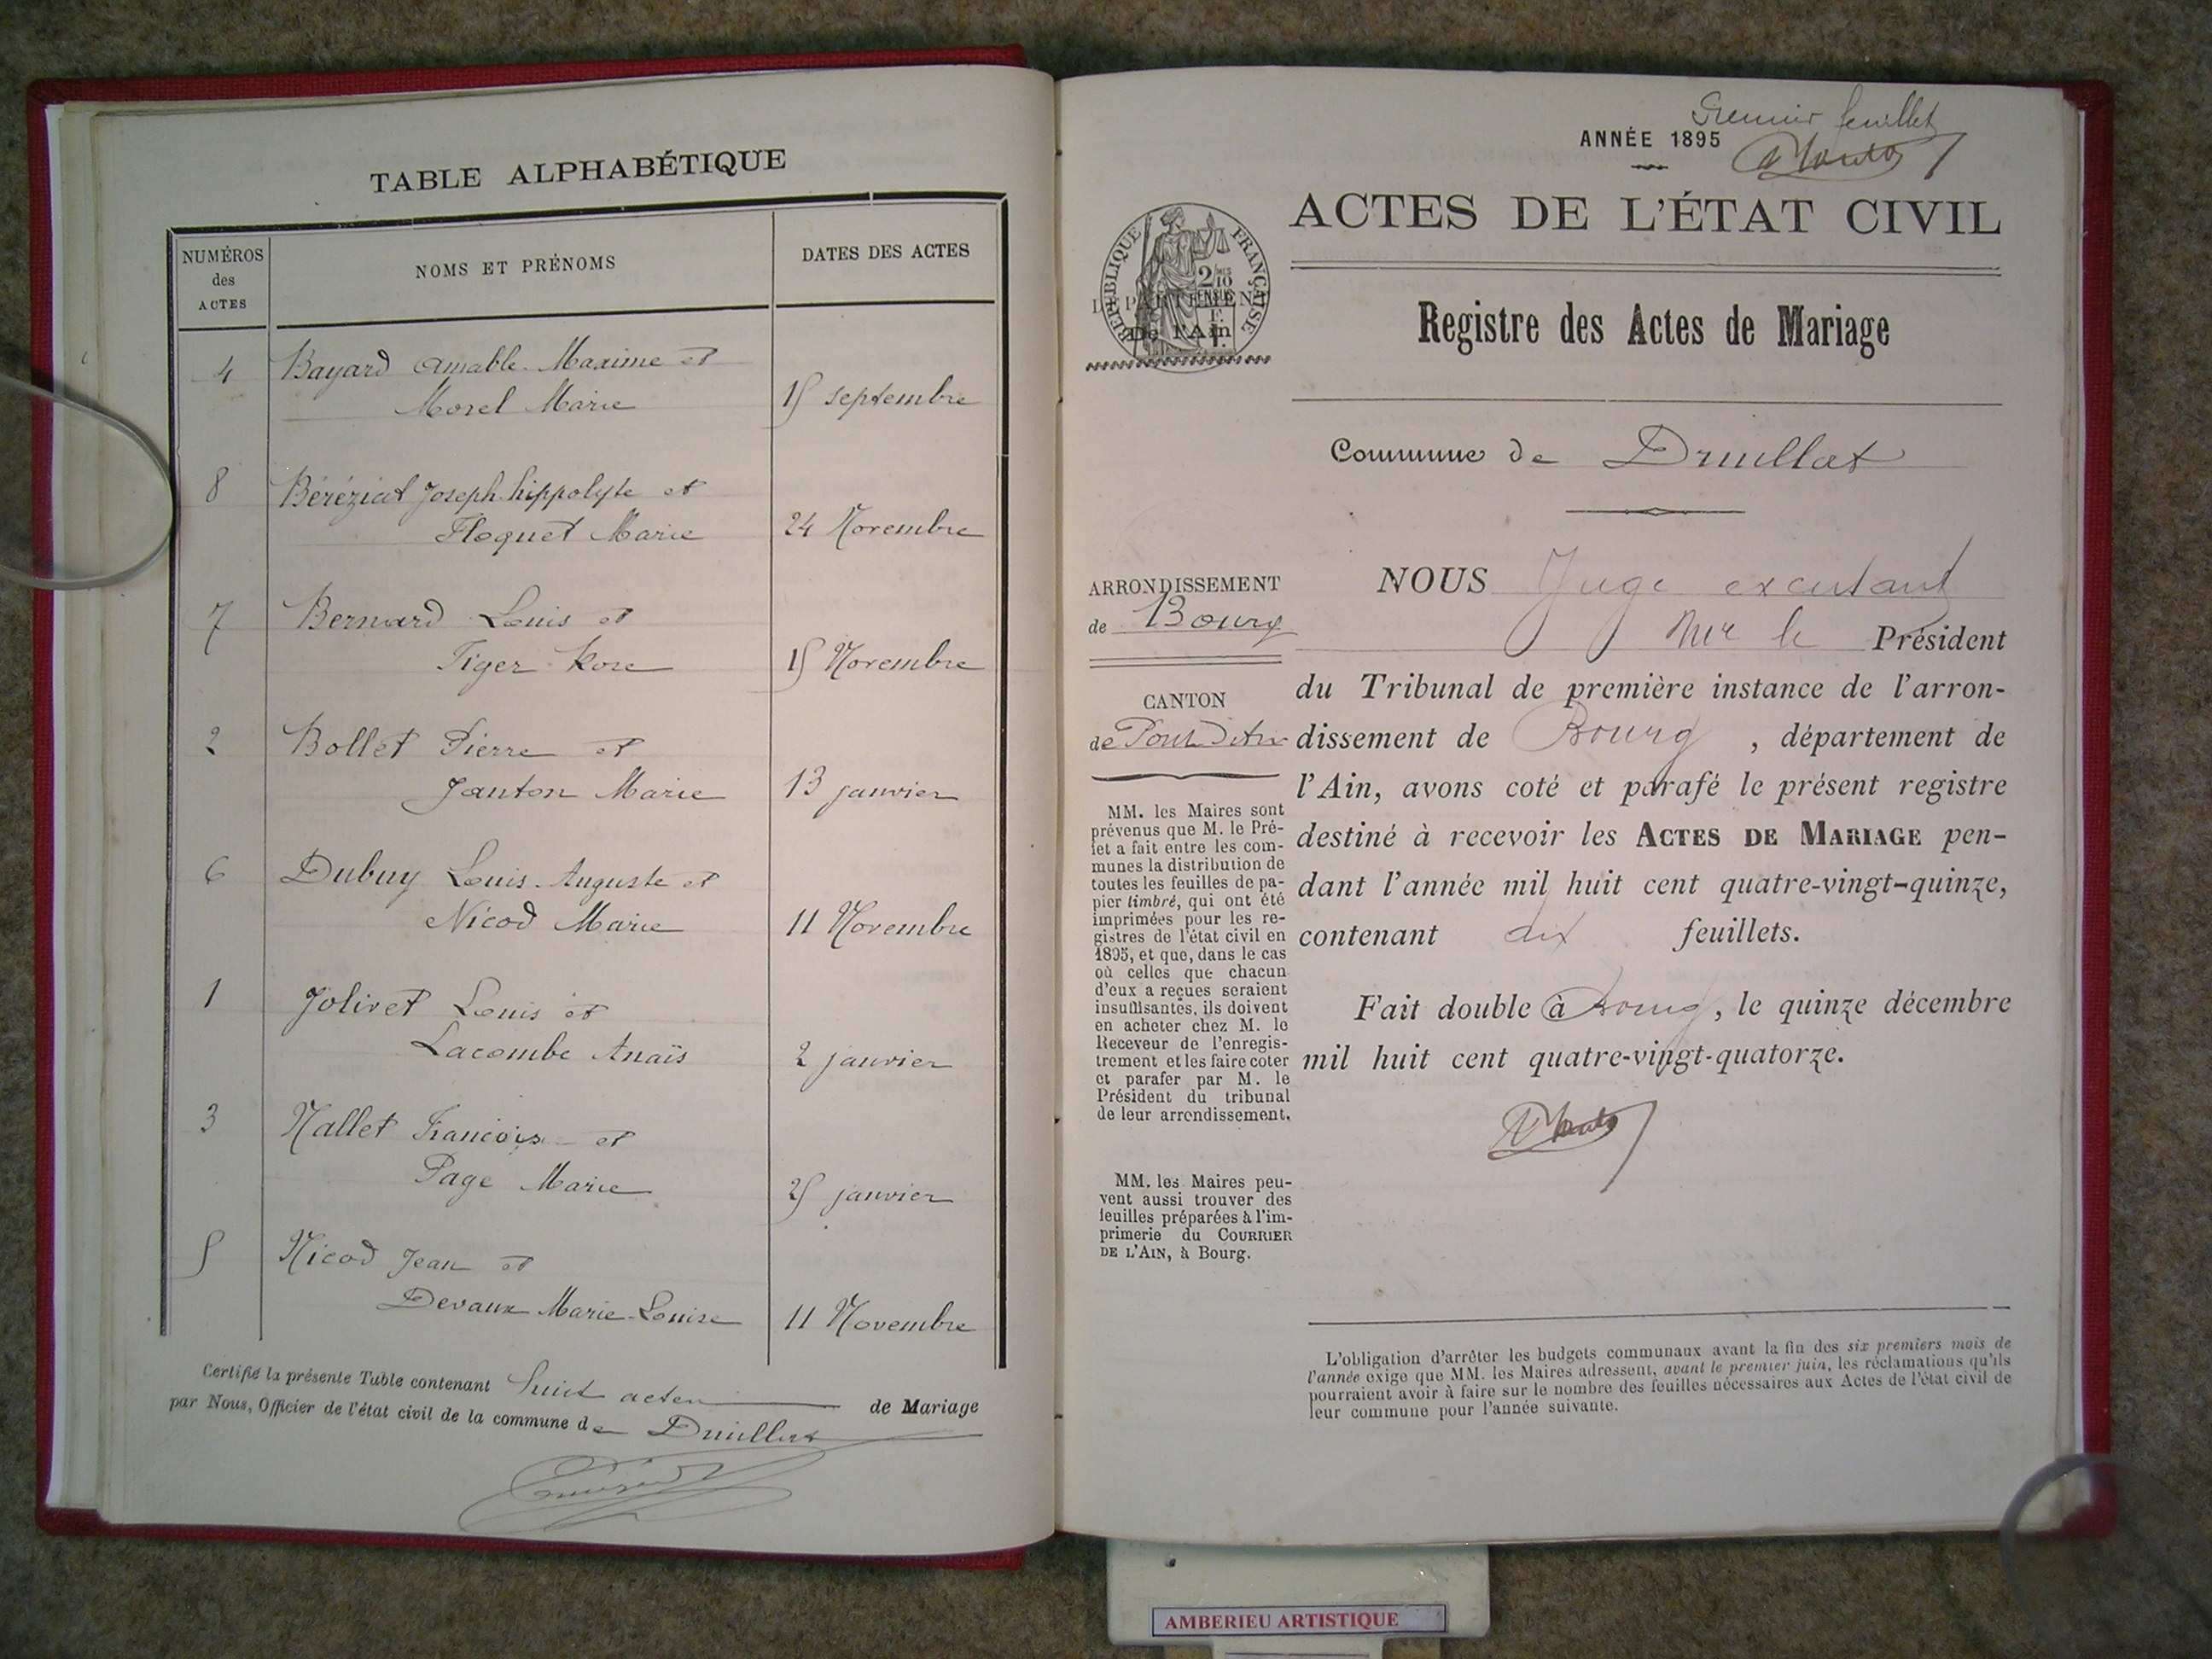 TABLE ALPHABÉTIQUE
NUMÉROS des ACTES
NOMS ET PRÉNOMS
DATES DES ACTES
4 Bayard Amable Maxime et
Morel Marie 15 septembre
8 Béréziat Joseph hippolyte et
Floquet Marie 24 Novembre
7 Bernard Louis et
Tiger Rose 15 Novembre
2 Bollet Pierre et
Janton Marie 13 janvier
6 Dubuy Louis-Auguste et
Nicod Marie 11 Novembre
1 Jolivet Louis et
Lacombe Anaïs 2 janvier
3 Nallet François et
Page Marie 25 janvier
5 Nicod Jean et
Devaux Marie-Louise 11 Novembre
Certifié la présente Table contenant huit actes de Mariage
par Nous, Officier de l'état civil de la commune de Druillat
Premier feuillet
ANNÉE 1895
ACTES DE L'ÉTAT CIVIL
RÉPUBLIQUE FRANÇAISE
2/10 EN SUS
DÉPARTEMENT
De l'Ain
Registre des Actes de Mariage
Commune de Druillat
ARRONDISSEMENT
de Bourg
CANTON
de Pont d'Ain
MM. les Maires sont
prévenus que M. le Pré-
fet a fait entre les com-
munes la distribution de
toutes les feuilles de pa-
pier timbré, qui ont été
imprimées pour les re-
gistres de l'état civil en
1895, et que, dans le cas
où celles que chacun
d'eux a reçues seraient
insuffisantes, ils doivent
en acheter chez M. le
Receveur de l'enregis-
trement et les faire coter
et parafer par M. le
Président du tribunal
de leur arrondissement.
MM. les Maires peu-
vent aussi trouver des
feuilles préparées à l'im-
primerie du COURRIER
DE L'AIN, à Bourg.
NOUS Juge
Mr le Président
du Tribunal de première instance de l'arron-
dissement de Bourg, département de
l'Ain, avons coté et parafé le présent registre
destiné à recevoir les ACTES DE MARIAGE pen-
dant l'année mil huit cent quatre-vingt-quinze,
contenant dix feuillets.
Fait double à Bourg, le quinze décembre
mil huit cent quatre-vingt-quatorze.
L'obligation d'arrêter les budgets communaux avant la fin des six premiers mois de
l'année exige que MM. les Maires adressent, avant le premier juin, les réclamations qu'ils
pourraient avoir à faire sur le nombre des feuilles nécessaires aux Actes de l'état civil de
leur commune pour l'année suivante.
AMBERIEU ARTISTIQUE